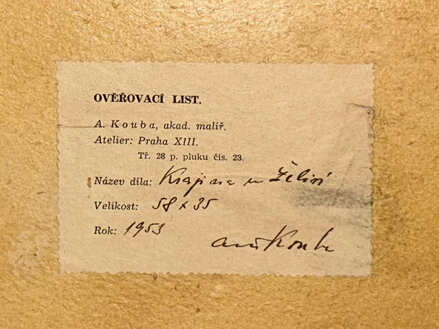 OVĚŘOVACÍ LIST.
A. Kouba, akad. malíř.
Atelier: Praha XIII.
Tř. 28 p. pluku čís. 23.
Název díla: Krajina u
Velikost: 58 x 35
Rok: 1953
Kouba